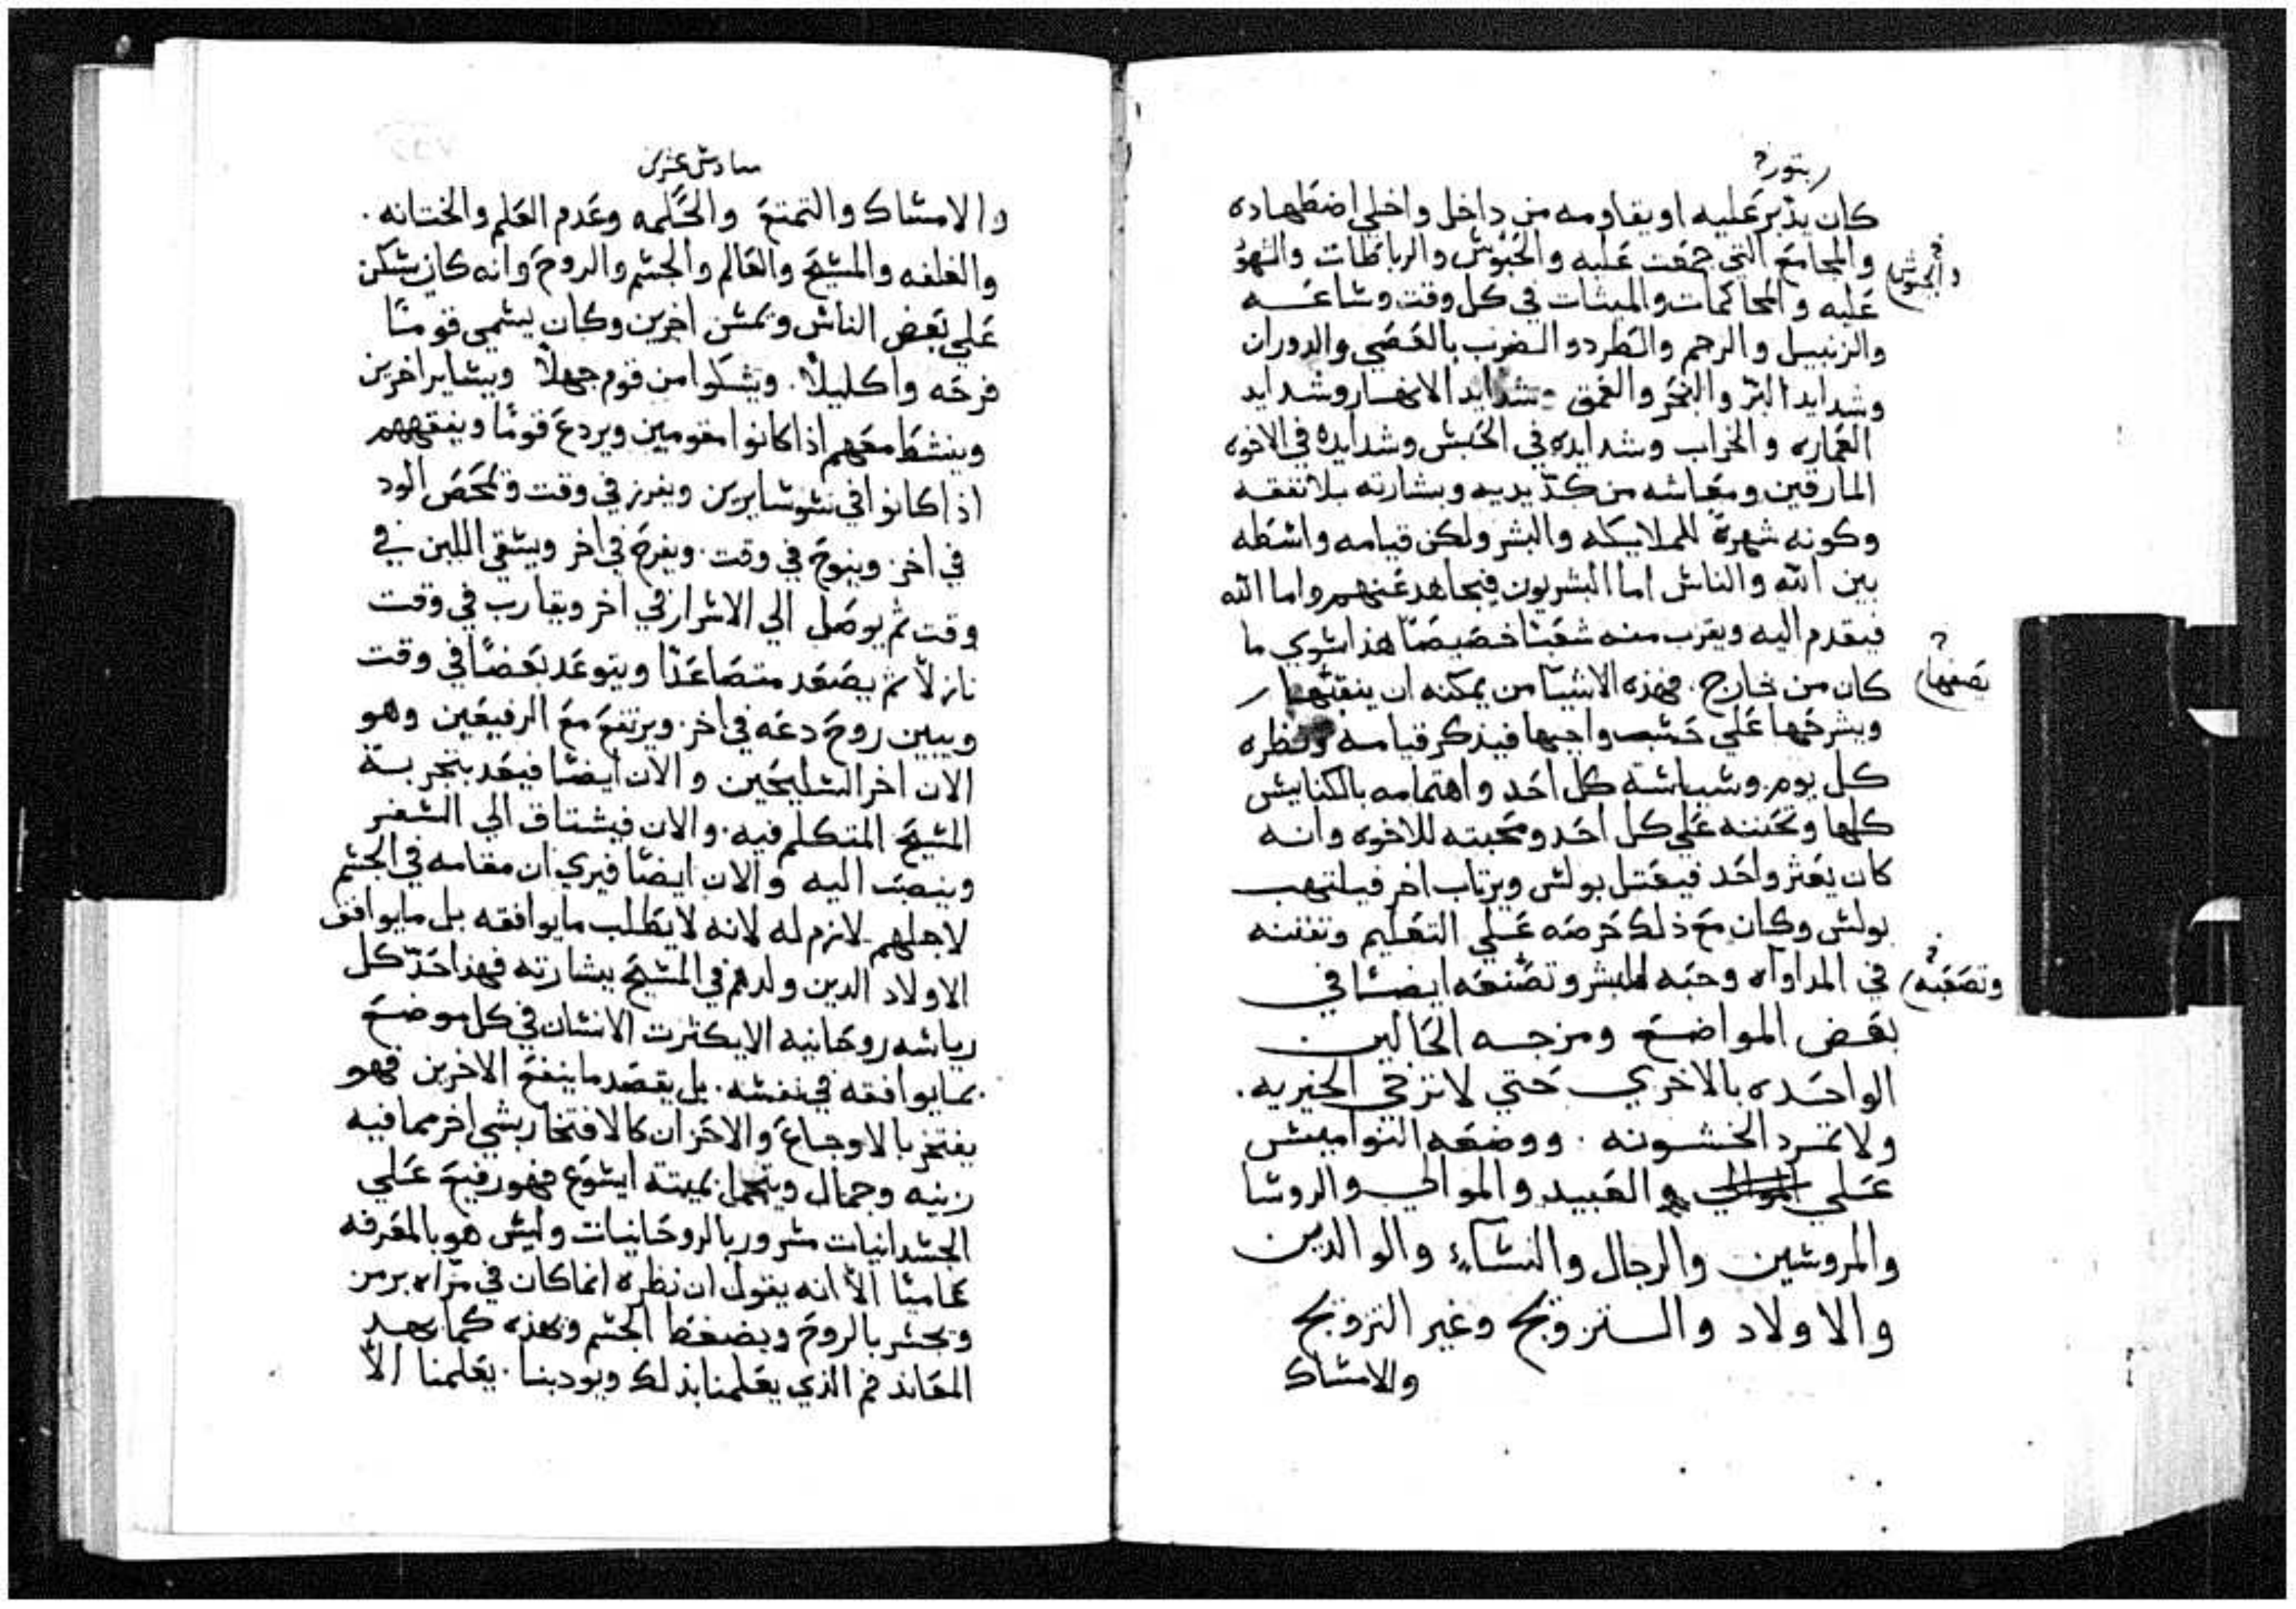 كان يدبر عليه او يقاومه من داخل واخلي اضطهاده
والمجامع التي جمعت عليه والحبوش والرباطات والنهو
عليه والمحاكمات والميتات في كل وقت وشاعه
والزنبيل والرجم والطرد والضرب بالعصي والدوران
وشدايد البر والبحر والعمق وشدايد الانهار وشدايد
العماره والخراب وشدايده في الحبش وشدايده في الاخوه
المارقين ومعاشه من كد يديه وبشارته بلا نفقه
وكونه شهرة للملايكه والبشر ولكن قيامه واشطه
بين الله والناش اما البشريون فيجاهد عنهم واما الله
فيقدم اليه ويقرب منه شعبا خصيصا هذا شوي ما
كان من خارج. فهذه الاشيا من يمكنه ان
ويشرحها علي حشب واجبها فيذكر قيامه ونظره
كل يوم. وشياشته كل احد واهتمامه بالكنايش
كلها وتحننه علي كل احد ومحبته للاخوه وانه
كان يعثر واحد فيعتل بولش ويرتاب اخر فيلتهب
بولش وكان مع ذلك حرصه علي التعليم وتفننه
في المداواه وحبه للبشر وتصنعه ايضا في
بعض المواضع ومزجه الحالين
الواحده بالاخري حتي لا ترخي الخيريه.
ولا تمرد الخشونه. ووضعه النواميش
علي العبيد والموالي والروشا
والمروشين والرجال والنشاء والوالدين
والاولاد والتزويج وغير التزويج
والامشاك
والجيوش
نصفها
وتصعبه
سادش عشرين
والامشاك والتمتع والحكمه وعدم العلم والختانه.
والغلفه والمشيح والعالم والجشم والروح وانه كان يشكر
علي بعض الناش ويمشن اخرين وكان يشمي قومًا
فرحه واكليلاً. ويشكوا من قوم جهلاً ويشاير اخرين
وينشط معهم اذا كانوا مقومين ويردع قومًا ويفقههم
اذا كانوا في شايرين ويفرز في وقت ويمحص الود
في اخر وينوح في وقت. ويفرح في اخر ويشقي اللبن في
وقت ثم يوصل الي الاشرار في اخر ويقارب في وقت
نازلاً ثم يصعد متصاعدًا ويتوعد بعضًا في وقت
ويبين روح دعه في اخر. ويرتفع مع الرفيعين وهو
الان اخر الشليحين والان ايضا فيعد بتجربة
المشيح المتكلم فيه. والان فيشتاق الي الشفر
وينصب اليه والان ايضا فيري ان مقامه في الجشم
لاجلهم لازم له لانه لا يطلب ما يوافقه بل ما يوافق
الاولاد الدين ولدهم في المشيح ببشارته فهذا حد كل
رياشه روحانيه الا يكترت الانشان في كل موضع
بما يوافقه في نفشه. بل يقصد ما ينفع الاخرين فهو
يفتخر بالاوجاع والاحزان كالافتخار بشي اخر مما فيه
زينه وجمال ويتجمل بميتة ايشوع فهو رفيع علي
الجشدانيات مشرور بالروحانيات وليش هو بالمعرفه
عاميًا الا انه يقول ان نظره انما كان في مراه برمز
ويجشر بالروح ويضغط الجشم ويهده كما يهد
المعاند فم الذي يعلمنا بذلك ويودبنا. يعلمنا الا